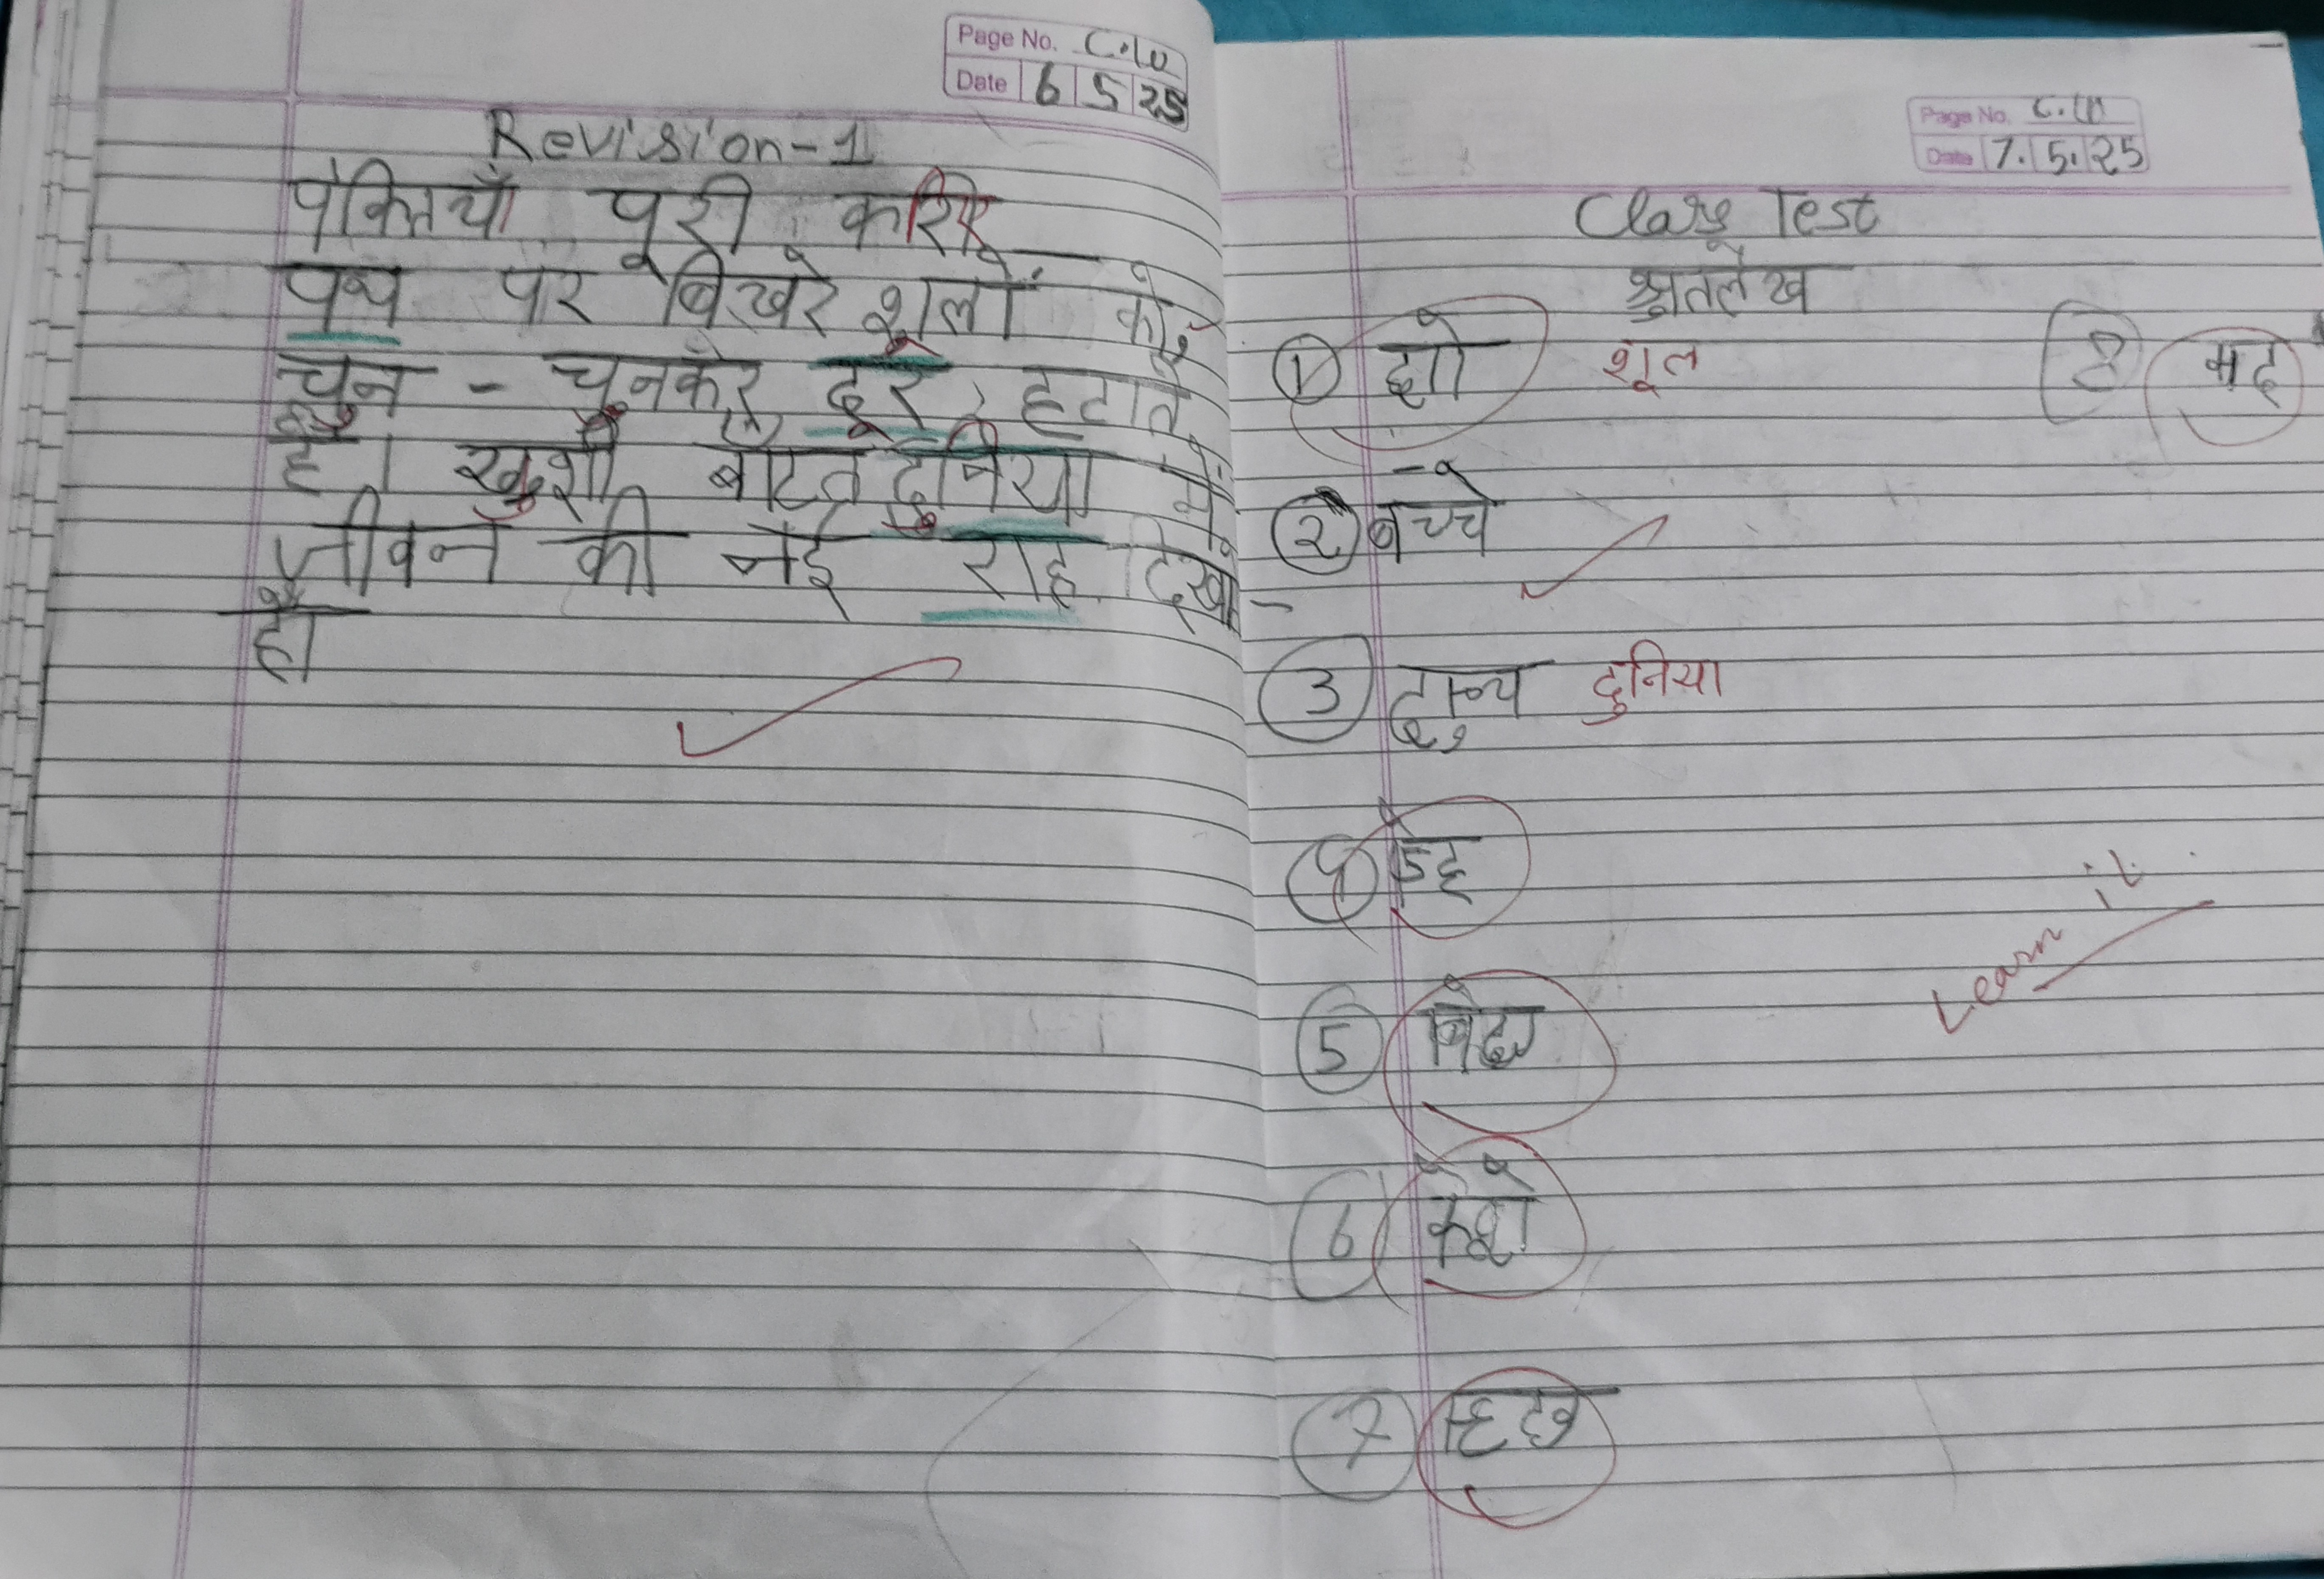 Page No. C.W
Date 6 5 25
Revision-1
पंक्तियाँ पूरी करिए
पथ पर बिखरे शूलों को
चुन - चुनकर दूर हटाते
हैं। खुशी बाँटते दुनिया में
जीवन की नई राह दिखा-
हैं।
Page No. C.W
Date 7. 5. 25
Class Test
श्रुतलेख
① शूल
② बच्चे
③ दुनिया
4
5
6
7
8 मद
Learn it.